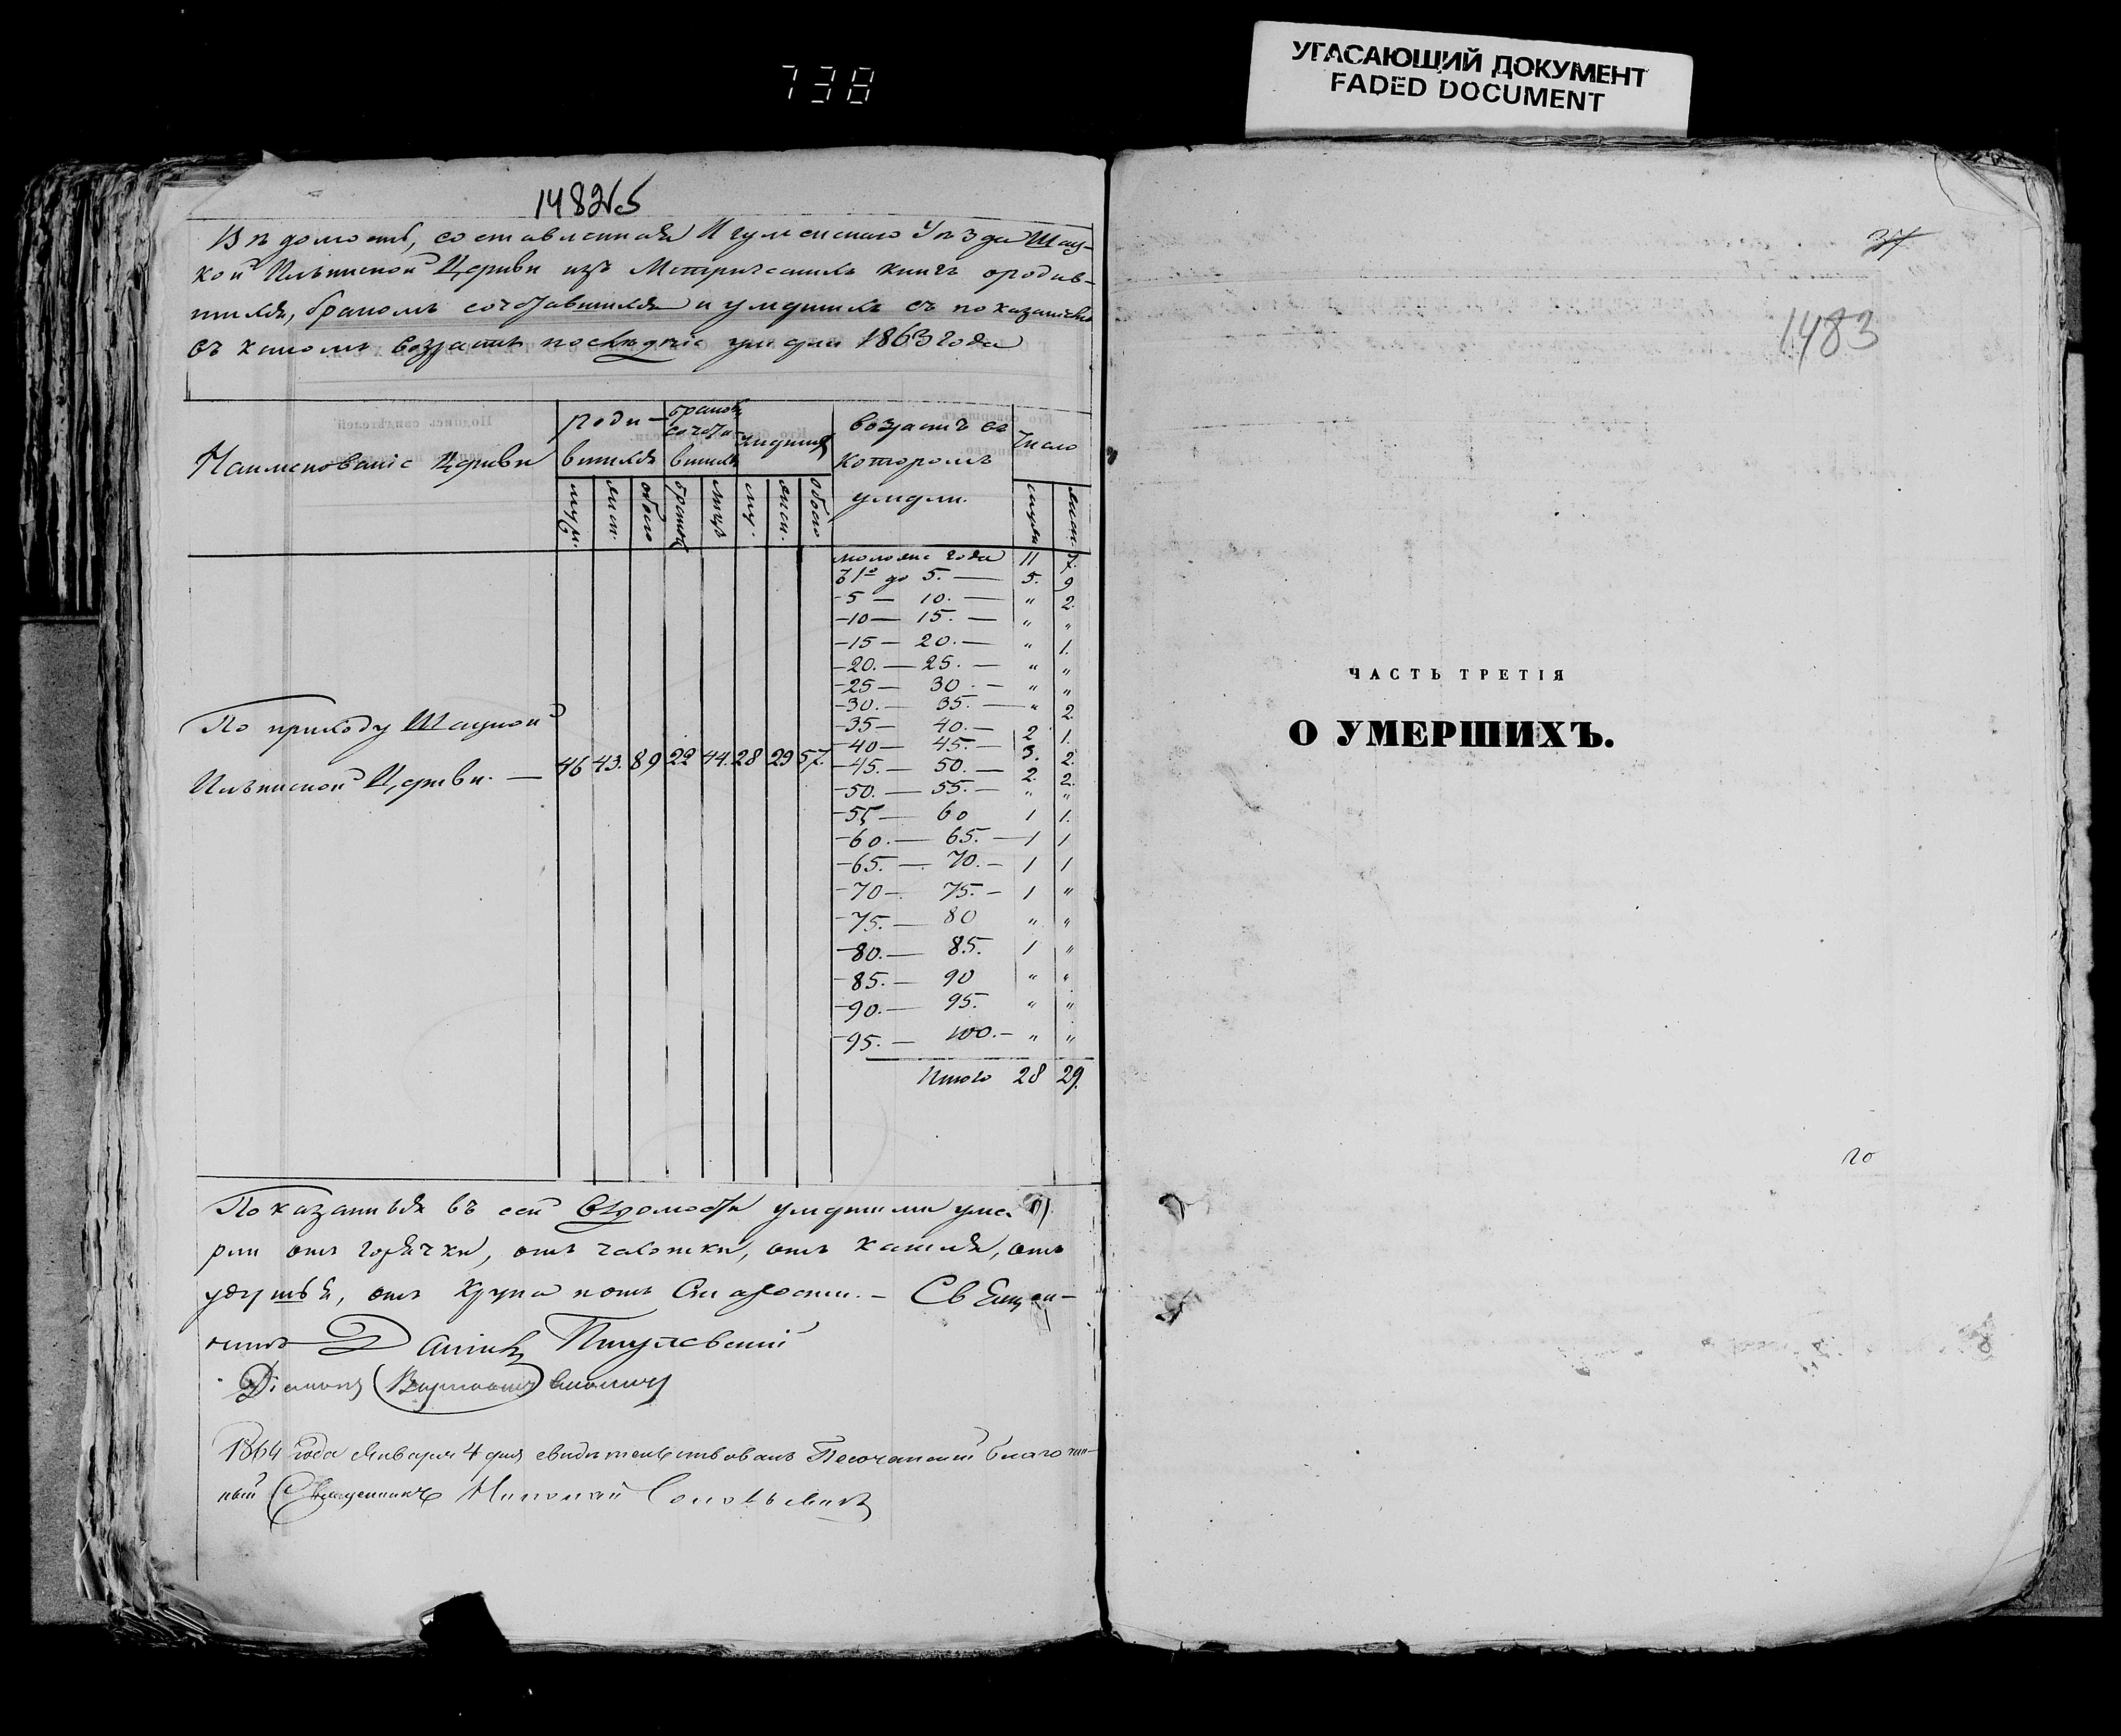 738
УГАСАЮЩИЙ ДОКУМЕНТ
FADED DOCUMENT
1482 об
Вѣдомость, составленная Игуменскаго Уѣзда Шац-
кой Ильинской Церкви изъ Метрическихъ книгъ о родив-
шихся, бракомъ сочетавшихся и умершихъ съ показаніемъ
въ какомъ возрастѣ послѣдніе умерли 1863 года
Наименованіе Церкви
роди-
вшихся
бракомъ
сочета-
вшихся
умершихъ
возрастъ въ
которомъ
умерли.
Число
муж.
жен.
обоего
браковъ
лицъ
му.
жен.
обоего
жен.
моложе года 11 7.
1го до 5. — 5. 9
-5 — 10. — " 2.
-10 — 15. — " "
-15 — 20. — " 1.
-20. — 25. — " "
-25 — 30. — " "
-30. — 35. — " 2.
-35 — 40. — 2 1.
-40 — 45. — 3. 2.
-45. — 50. — 2. 2.
-50. — 55. — " "
-55 — 60 1 1.
-60. — 65. — 1 1
-65. — 70. — 1 1
-70 — 75. — 1 "
-75. — 80 " "
-80. — 85. 1 "
-85. — 90 " "
-90. — 95. " "
-95. — 100. — " "
Итого 28 29.
По приходу Шацкой
Ильинской Церкви. — 46 43. 89 22 44. 28 29 57.
Показанныя въ сей Вѣдомости умершими уме-
рли отъ горячки, отъ чахотки, отъ кашля, отъ
удушья, отъ крупа и отъ Старости. — Священ-
никъ Даніилъ
1864 года Января 4 дня свидѣтельствовалъ Песочанскій благочин-
ный Священникъ Николай
37
1483
ЧАСТЬ ТРЕТІЯ
О УМЕРШИХЪ.